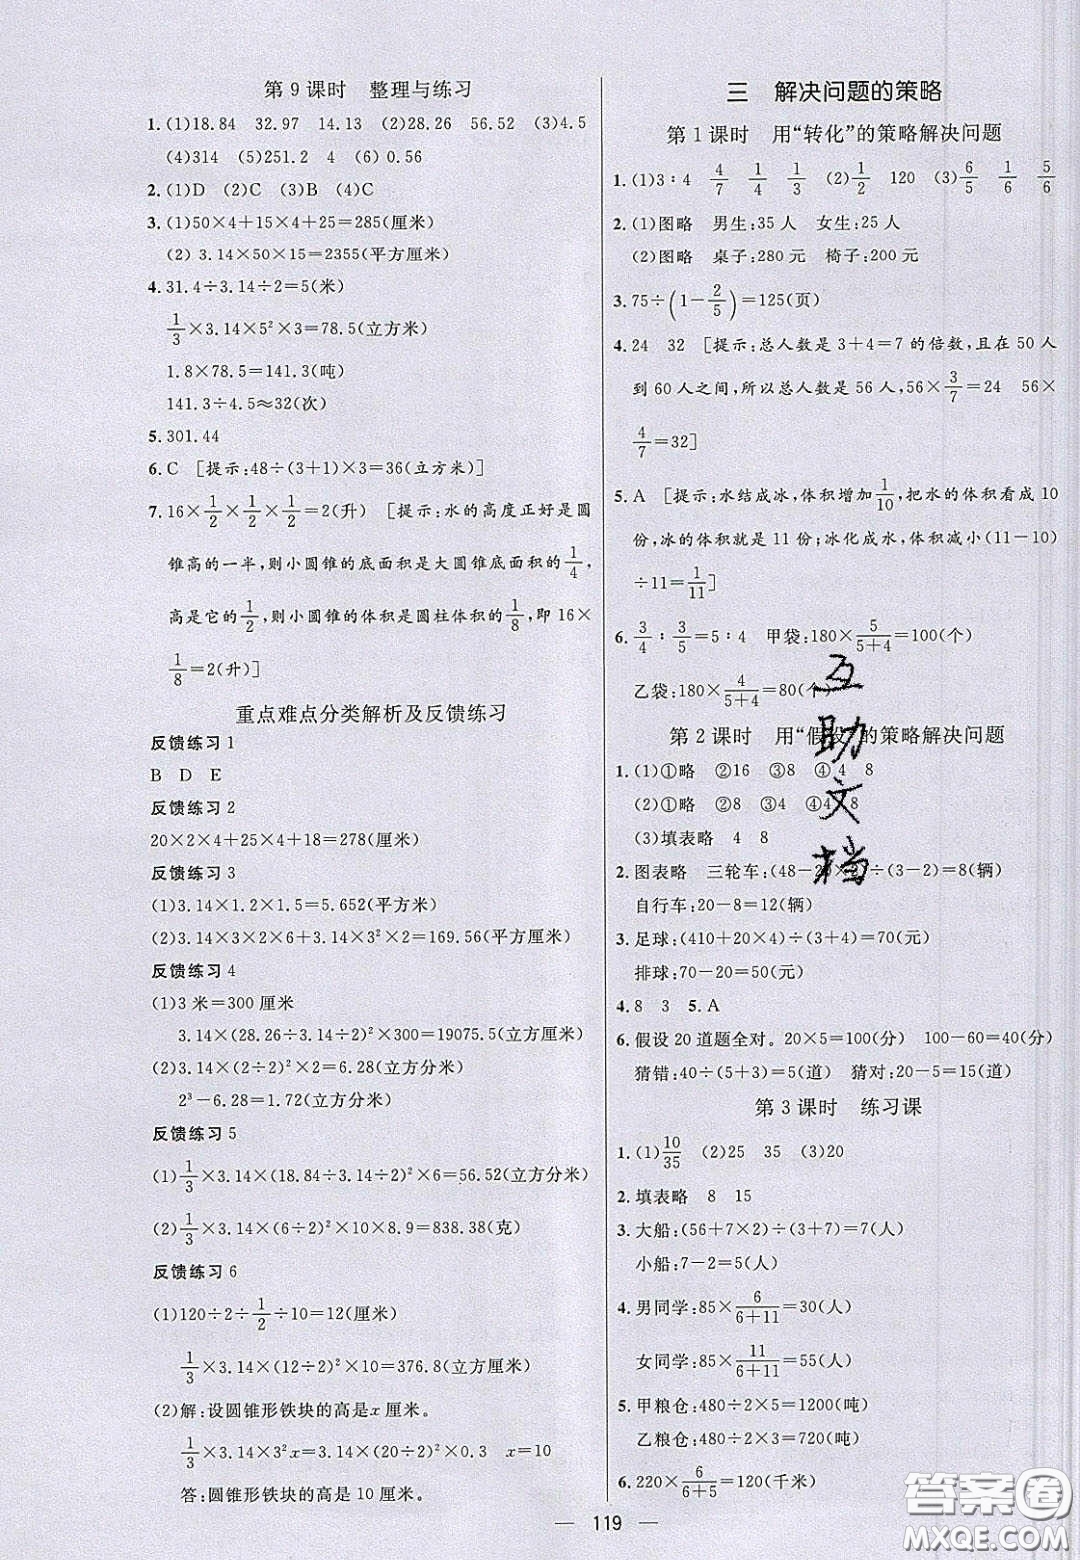 第9课时 整理与练习
1.(1)18.84 32.97 14.13 (2)28.26 56.52 (3)4.5
(4)314 (5)251.2 4 (6)0.56
2.(1)D (2)C (3)B (4)C
3.(1)50×4+15×4+25=285(厘米)
(2)3.14×50×15=2355(平方厘米)
4.31.4÷3.14÷2=5(米)
1/3×3.14×5²×3=78.5(立方米)
1.8×78.5=141.3(吨)
141.3÷4.5≈32(次)
5.301.44
6.C [提示:48÷(3+1)×3=36(立方米)]
7.16×1/2×1/2×1/2=2(升) [提示:水的高度正好是圆
锥高的一半,则小圆锥的底面积是大圆锥底面积的1/4,
高是它的1/2,则小圆锥的体积是圆柱体积的1/8,即16×
1/8=2(升)]
重点难点分类解析及反馈练习
反馈练习1
B D E
反馈练习2
20×2×4+25×4+18=278(厘米)
反馈练习3
(1)3.14×1.2×1.5=5.652(平方米)
(2)3.14×3×2×6+3.14×3²×2=169.56(平方厘米)
反馈练习4
(1)3米=300厘米
3.14×(28.26÷3.14÷2)²×300=19075.5(立方厘米)
(2)3.14×(2÷2)²×2=6.28(立方分米)
2³-6.28=1.72(立方分米)
反馈练习5
(1)1/3×3.14×(18.84÷3.14÷2)²×6=56.52(立方分米)
(2)1/3×3.14×(6÷2)²×10×8.9=838.38(克)
反馈练习6
(1)120÷2÷1/2÷10=12(厘米)
1/3×3.14×(12÷2)²×10=376.8(立方厘米)
(2)解:设圆锥形铁块的高是x厘米。
1/3×3.14×3²x=3.14×(20÷2)²×0.3 x=10
答:圆锥形铁块的高是10厘米。
三 解决问题的策略
第1课时 用“转化”的策略解决问题
1.(1)3∶4 4/7 1/4 1/3 (2)1/2 120 (3)6/5 1/6 5/6
2.(1)图略 男生:35人 女生:25人
(2)图略 桌子:280元 椅子:200元
3.75÷(1-2/5)=125(页)
4.24 32 [提示:总人数是3+4=7的倍数,且在50人
到60人之间,所以总人数是56人,56×3/7=24 56×
4/7=32]
5.A [提示:水结成冰,体积增加1/10,把水的体积看成10
份,冰的体积就是11份;冰化成水,体积减小(11-10)
÷11=1/11]
6.3/4∶3/5=5∶4 甲袋:180×5/(5+4)=100(个)
乙袋:180×4/(5+4)=80(个)
第2课时 用“假设”的策略解决问题
1.(1)①略 ②16 ③8 ④4 8
(2)①略 ②8 ③4 ④4 8
(3)填表略 4 8
2.图表略 三轮车:(48-20×2)÷(3-2)=8(辆)
自行车:20-8=12(辆)
3.足球:(410+20×4)÷(3+4)=70(元)
排球:70-20=50(元)
4.8 3 5.A
6.假设20道题全对。20×5=100(分) 100-60=40(分)
猜错:40÷(5+3)=5(道) 猜对:20-5=15(道)
第3课时 练习课
1.(1)10/35 (2)25 35 (3)20
2.填表略 8 15
3.大船:(56+7×2)÷(3+7)=7(人)
小船:7-2=5(人)
4.男同学:85×6/(6+11)=30(人)
女同学:85×11/(6+11)=55(人)
5.甲粮仓:480÷2×5=1200(吨)
乙粮仓:480÷2×3=720(吨)
6.220×6/(6+5)=120(千米)
互助文档
119
答案圈
MXQE.COM